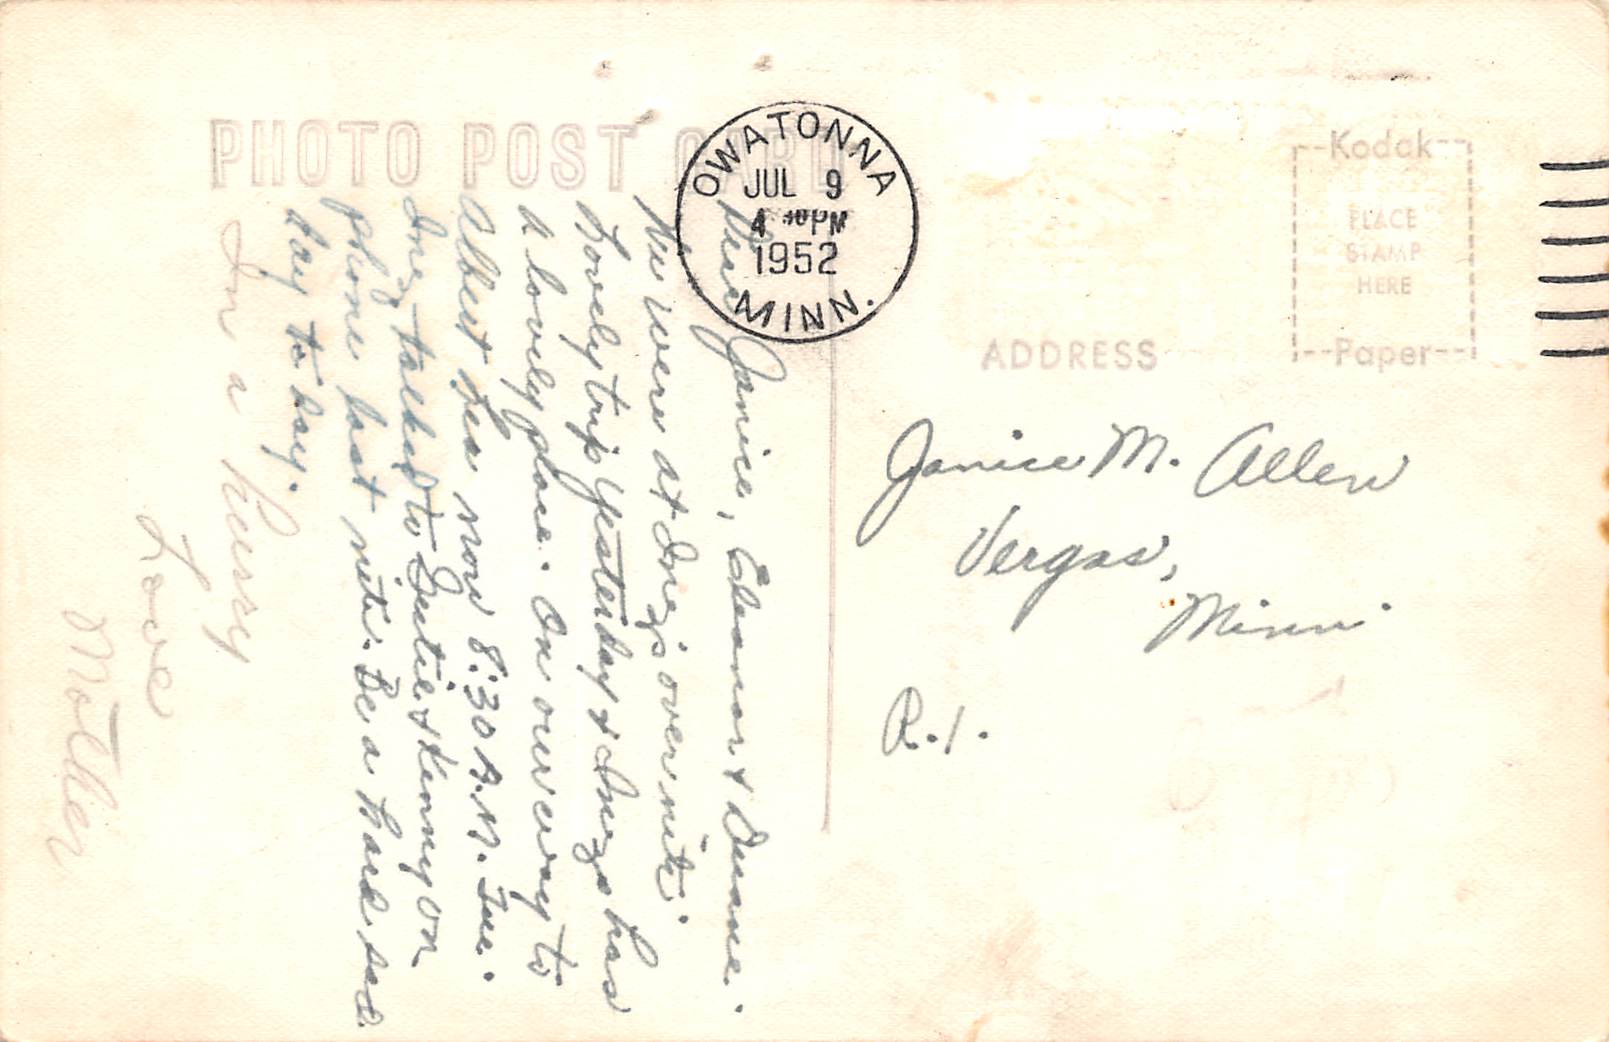 PHOTO POST CARD
OWATONNA
JUL 9
4 30 PM
1952
MINN.
Kodak
PLACE
STAMP
HERE
Paper
ADDRESS
Dear Janice, Eleanor & Duane.
We were at Inez's over nite.
Lovely trip yesterday & Inez has
a lovely place. On our way to
Albert Lea now 8:30 A.M. Tue.
Inez talked to & Kenny on
phone last nite. Be a hard sad
day to day.
In a hurry
Love
Mother
Janice M. Allen
Vergas,
Minn
R.1.